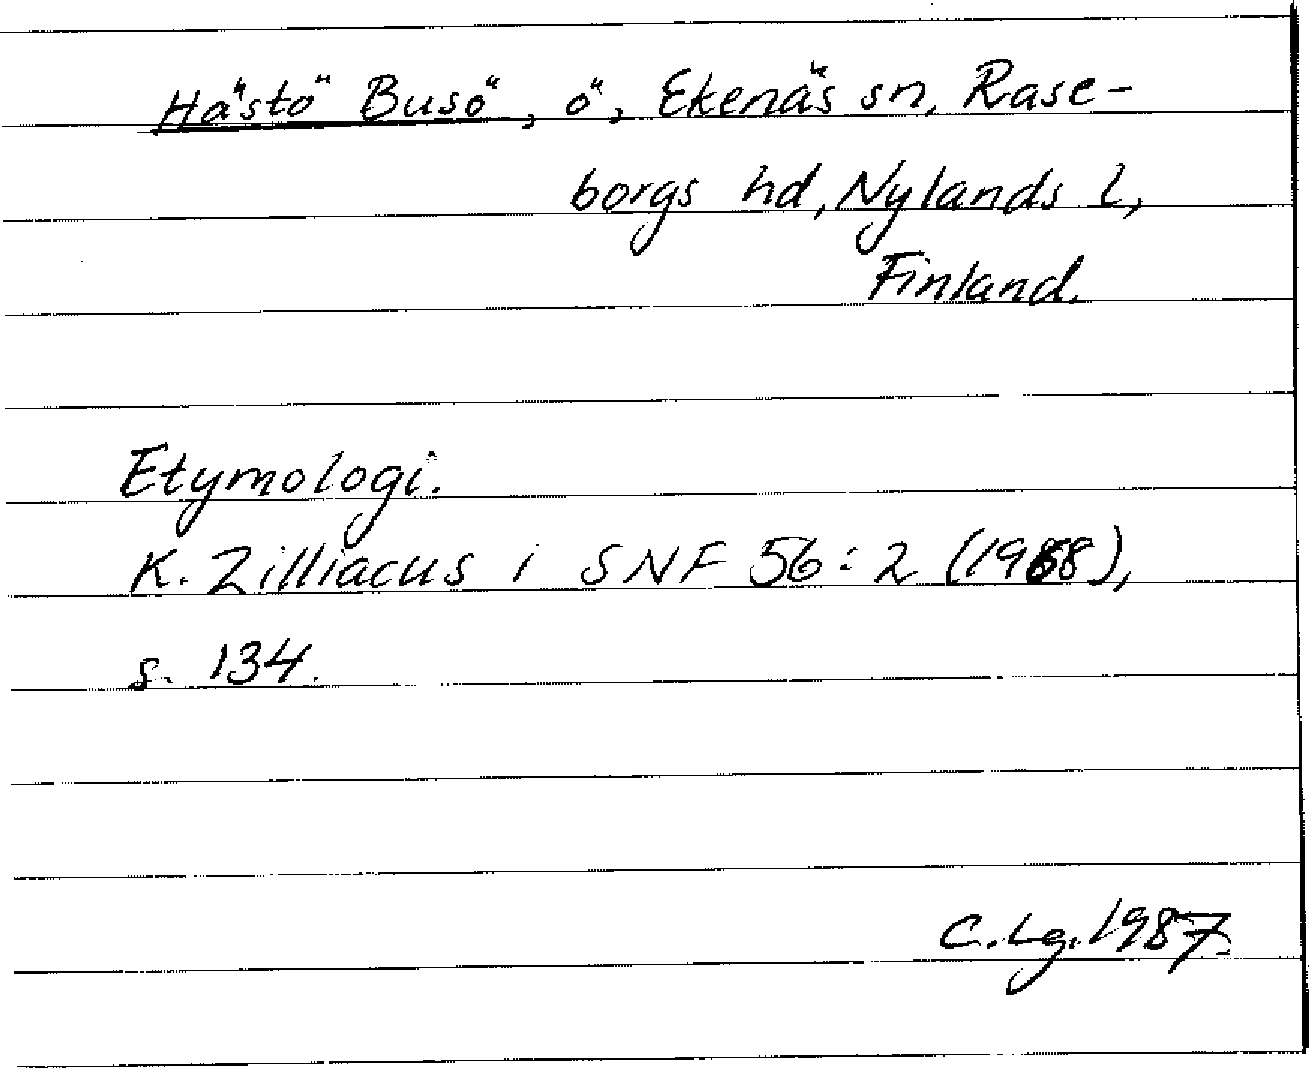 Hästö Busö, ö, Ekenäs sn, Rase-
borgs hd, Nylands l,
Finland.
Etymologi.
K. Zilliacus i SNF 56:2 (1968),
s. 134.
C.Lg. 1987